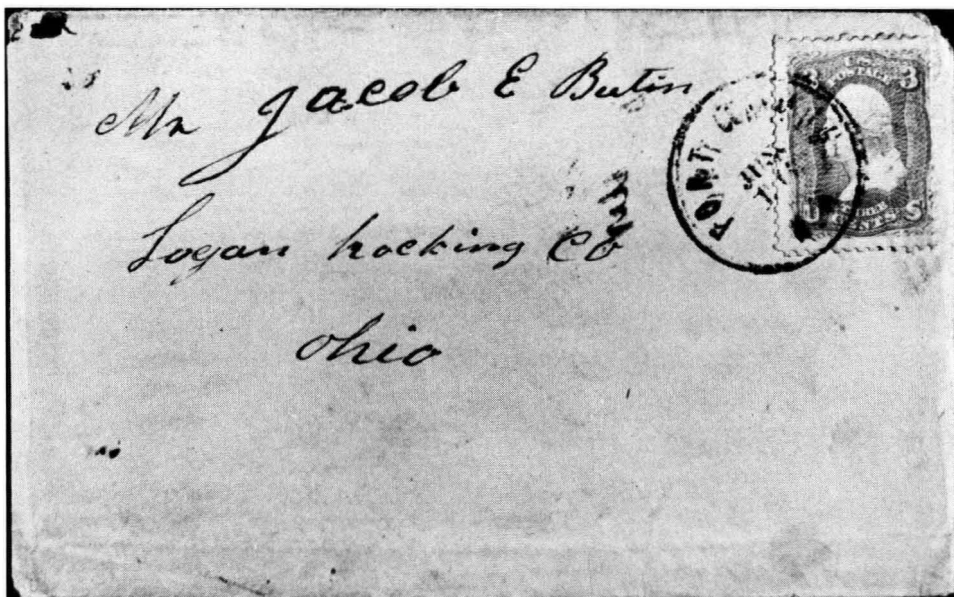 Mr Jacob E Butin
Logan hocking Co
ohio
FORT
JUN
U.S.
POSTAGE
3 3
THREE
CENTS
U S